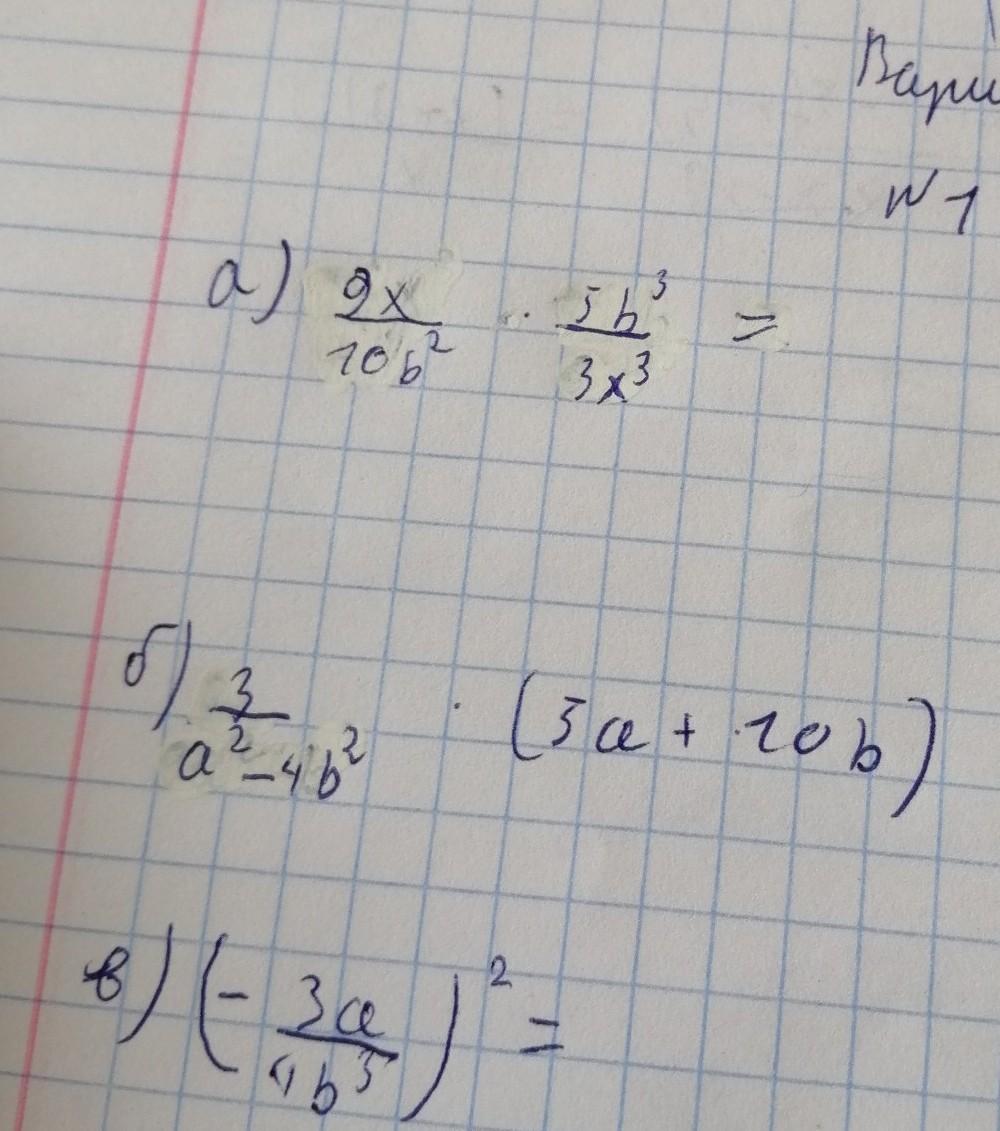 N 1
а) 9x/10b² · 5b³/3x³ =
б) 3/a²-4b² · (5a + 10b)
в) (- 3a/4b³)² =